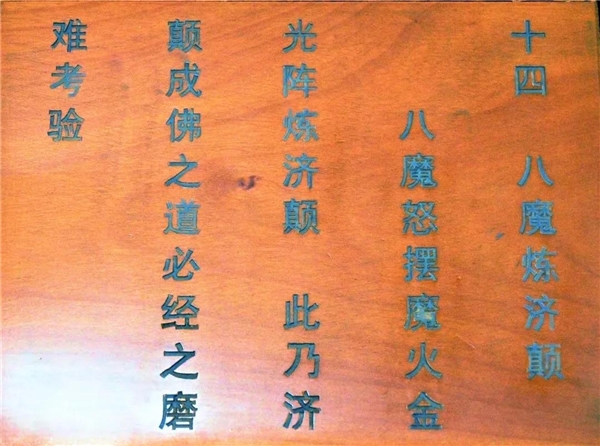 十四 八魔炼济颠
八魔怒摆魔火金
光阵炼济颠 此乃济
颠成佛之道必经之磨
难考验